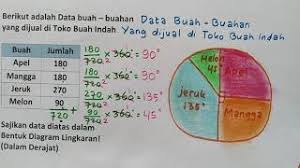 Berikut adalah Data buah – buahan
yang dijual di Toko Buah Indah.
Data Buah - Buahan
Yang dijual di Toko Buah Indah
Buah Jumlah
Apel 180
Mangga 180
Jeruk 270
Melon 90 +
720
180/720 × 360° = 90°
180/720 × 360° = 90°
270/720 × 360° = 135°
90/720 × 360° = 45°
Sajikan data diatas dalam
Bentuk Diagram Lingkaran!
(Dalam Derajat)
Melon
45°
Apel
Jeruk
135°
Mangga